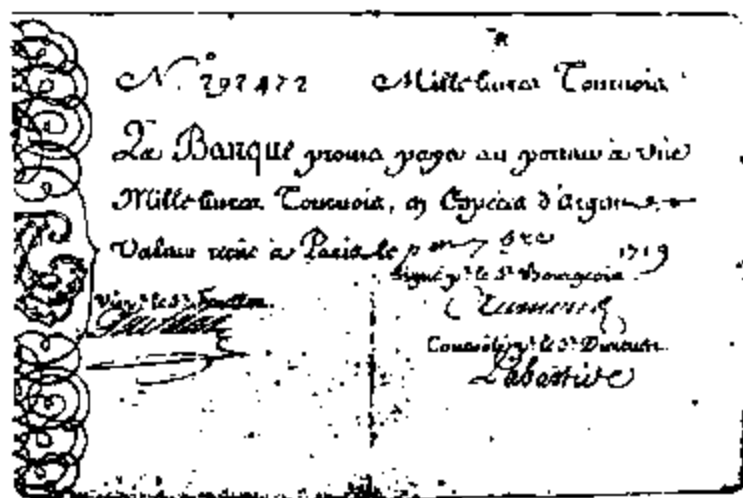 N.º 292472 Mille livres Tournois
La Banque promet payer au porteur à vüe
Mille livres Tournois, en Espèces d'Argent
Valeur reçüe à Paris le 1719
Signé p.r le S.r Bourgeois.
Vû p.r le S.r Fenellon.
Controllé p.r le S.r Durevest.
Labastide